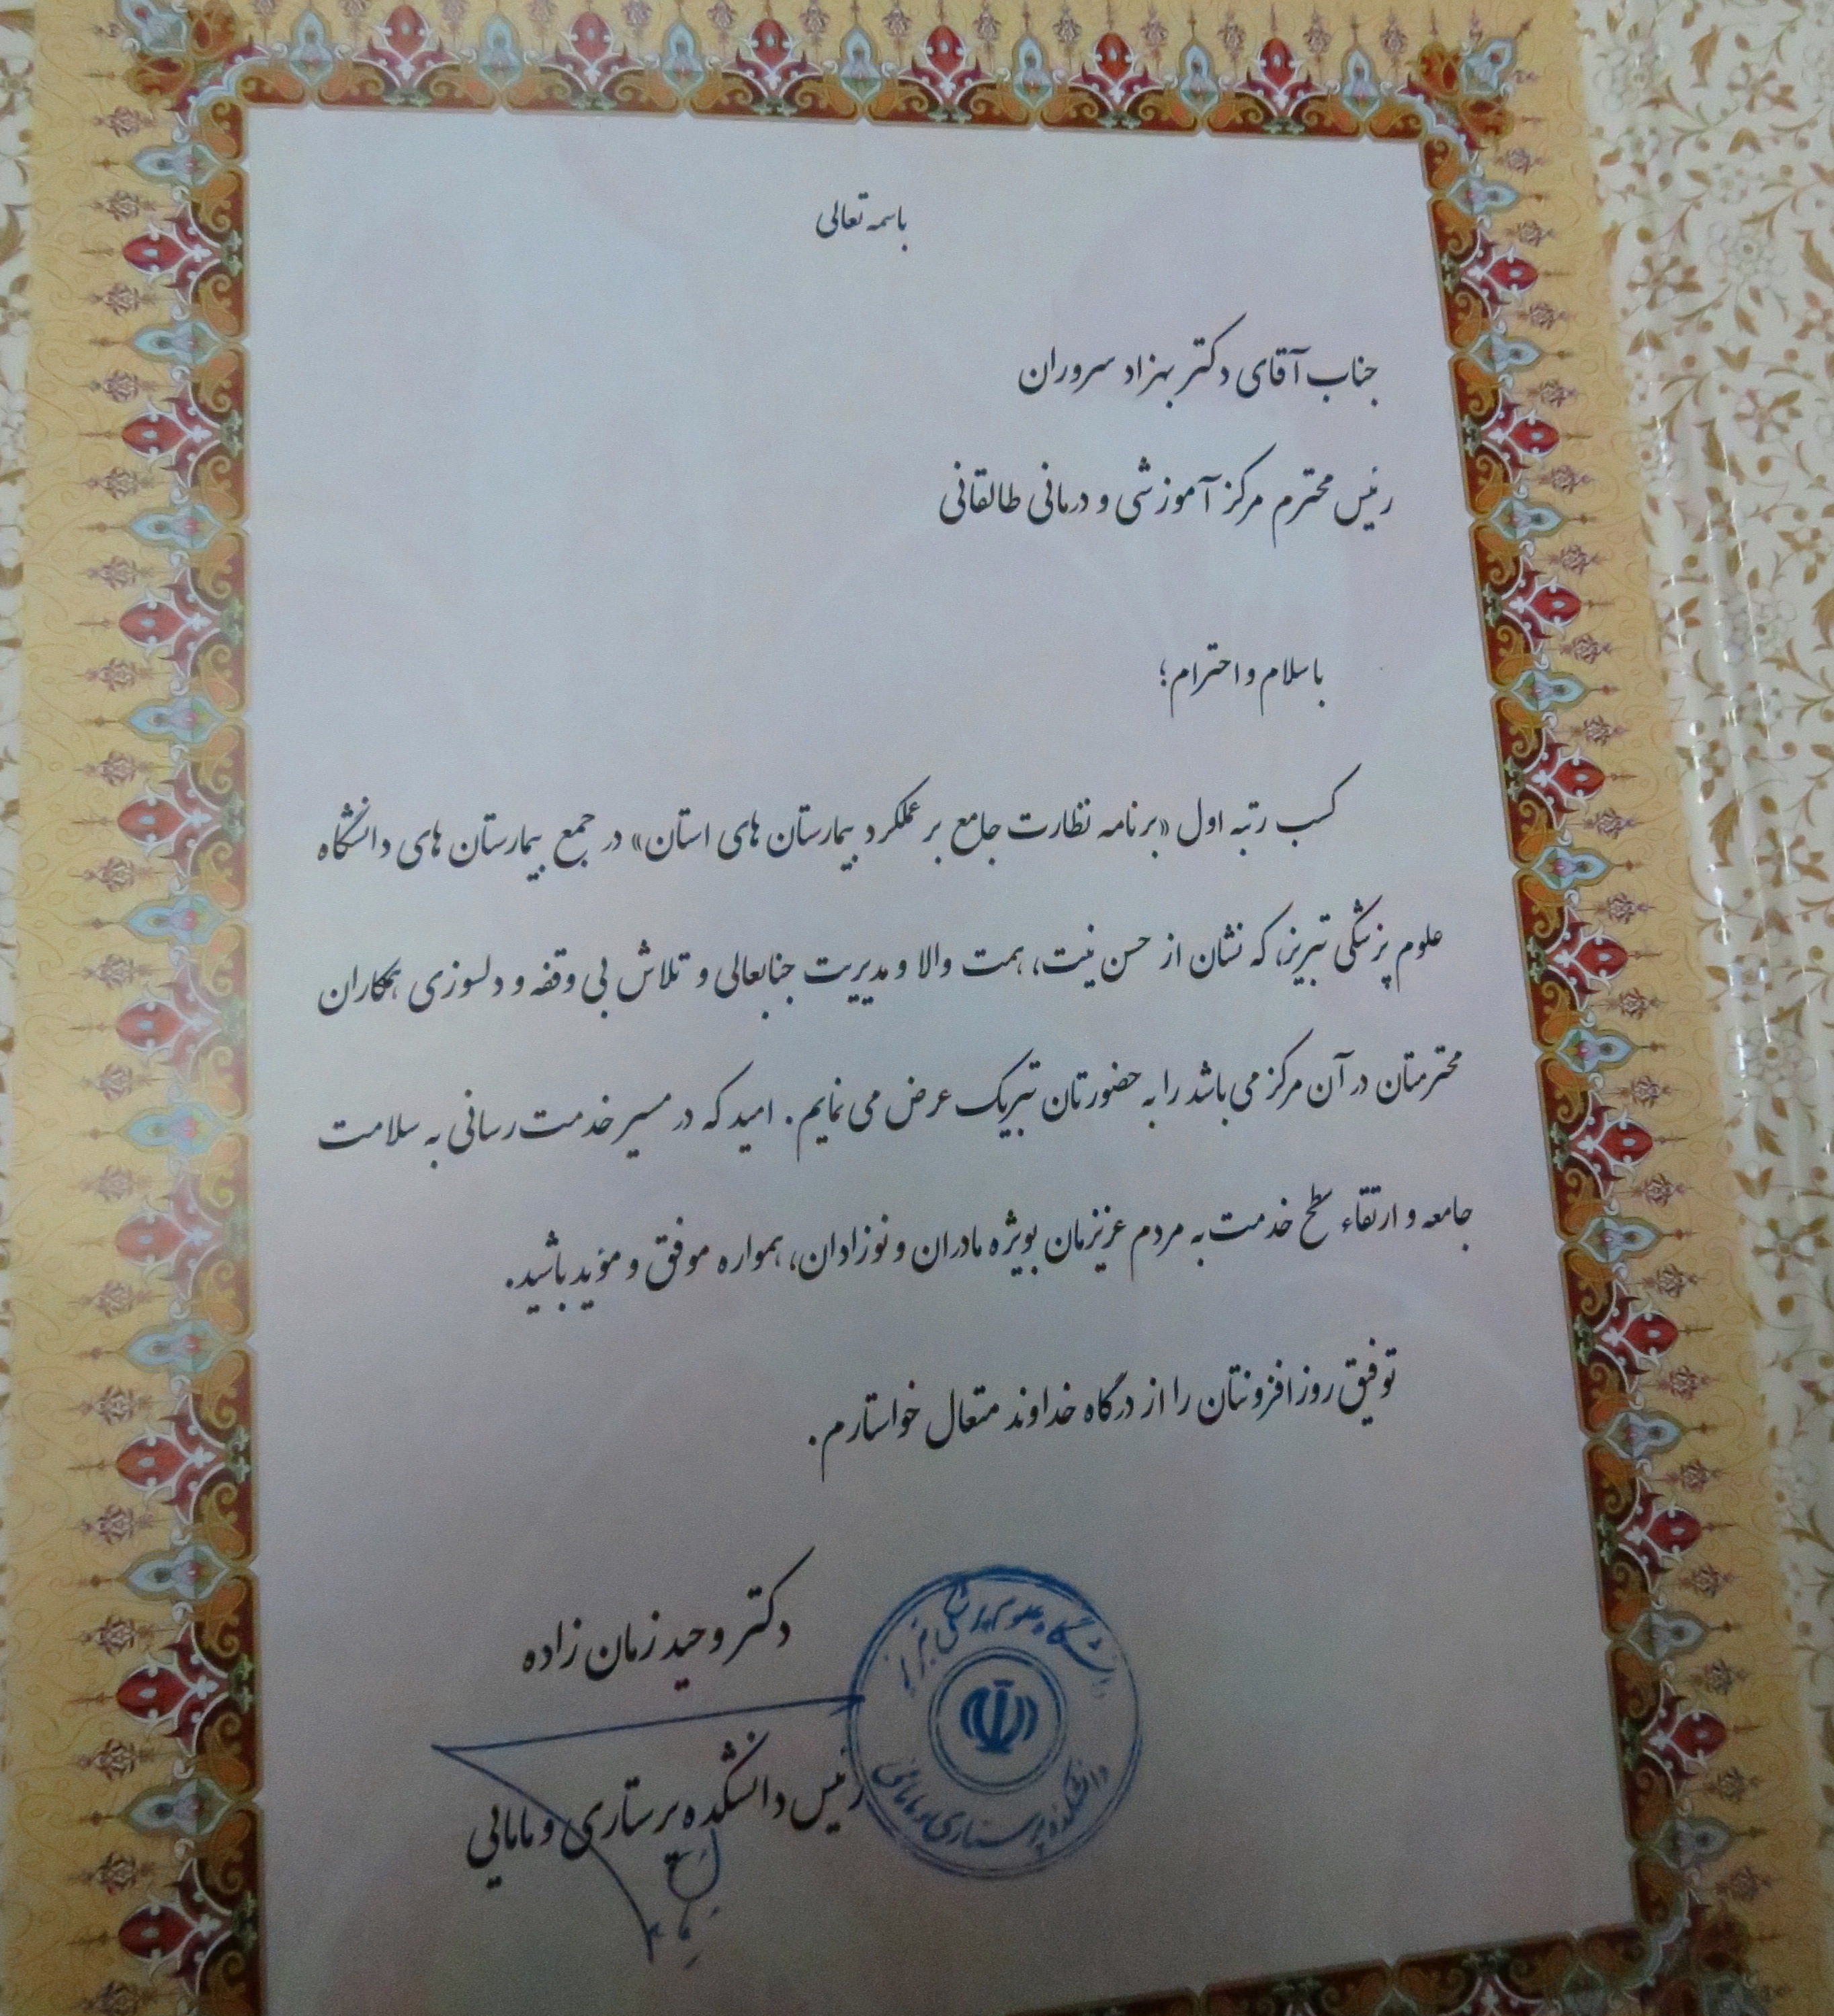 باسمه تعالی
جناب آقای دکتر بهزاد سروران
رئیس محترم مرکز آموزشی و درمانی طالقانی
با سلام و احترام؛
کسب رتبه اول «برنامه نظارت جامع بر عملکرد بیمارستان های استان» در جمع بیمارستان های دانشگاه
علوم پزشکی تبریز، که نشان از حسن نیت، همت والا و مدیریت جنابعالی و تلاش بی وقفه و دلسوزی همکاران
محترمتان در آن مرکز می باشد را به حضورتان تبریک عرض می نمایم. امید که در مسیر خدمت رسانی به سلامت
جامعه و ارتقاء سطح خدمت به مردم عزیزمان بویژه مادران و نوزادان، همواره موفق و موید باشید.
توفیق روزافزونتان را از درگاه خداوند متعال خواستارم.
دکتر وحید زمان زاده
رئیس دانشکده پرستاری و مامایی
دانشگاه علوم پزشکی تبریز
دانشکده پرستاری و مامائی